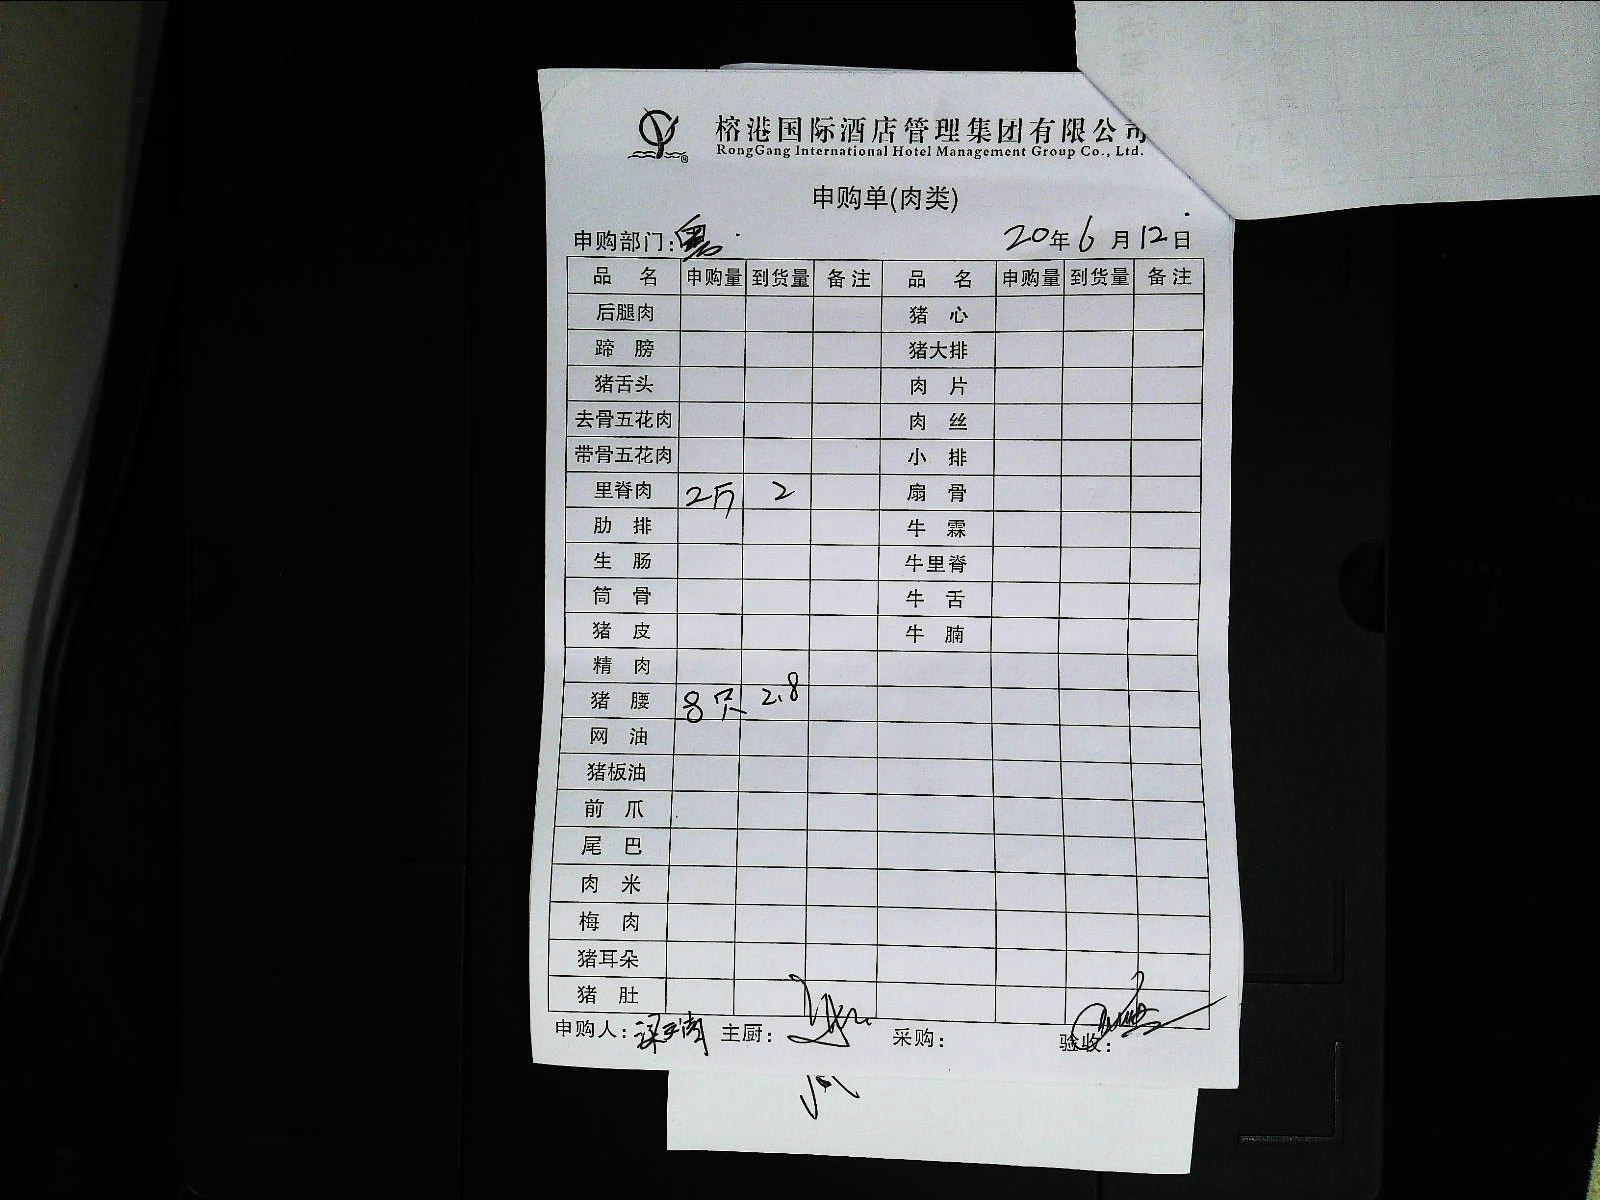 榕港国际酒店管理集团有限公司
RongGang International Hotel Management Group Co., Ltd.
申购单(肉类)
申购部门: 20年6月12日
品 名 申购量 到货量 备注 品 名 申购量 到货量 备注
后腿肉 猪 心
蹄 膀 猪大排
猪舌头 肉 片
去骨五花肉 肉 丝
带骨五花肉 小 排
里脊肉 2斤 2 扇 骨
肋 排 牛 霖
生 肠 牛里脊
筒 骨 牛 舌
猪 皮 牛 腩
精 肉
猪 腰 8只 2.8
网 油
猪板油
前 爪
尾 巴
肉 米
梅 肉
猪耳朵
猪 肚
申购人: 主厨: 采购: 验收: